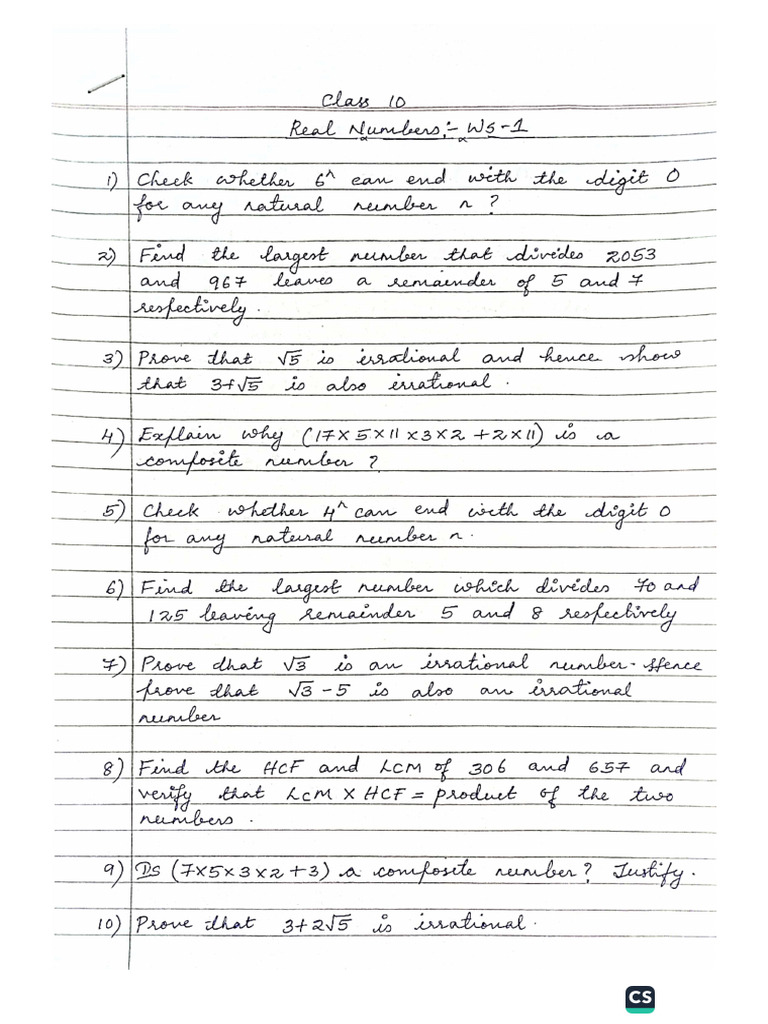 Class 10
Real Numbers:- WS-1
1) Check whether 6ⁿ can end with the digit 0
for any natural number n ?
2) Find the largest number that divides 2053
and 967 leaves a remainder of 5 and 7
respectively.
3) Prove that √5 is irrational and hence show
that 3+√5 is also irrational.
4) Explain why (17×5×11×3×2+2×11) is a
composite number ?
5) Check whether 4ⁿ can end with the digit 0
for any natural number n.
6) Find the largest number which divides 70 and
125 leaving remainder 5 and 8 respectively
7) Prove that √3 is an irrational number. Hence
prove that √3-5 is also an irrational
number
8) Find the HCF and LCM of 306 and 657 and
verify that LCM × HCF = product of the two
numbers.
9) Is (7×5×3×2+3) a composite number? Justify.
10) Prove that 3+2√5 is irrational.
CS